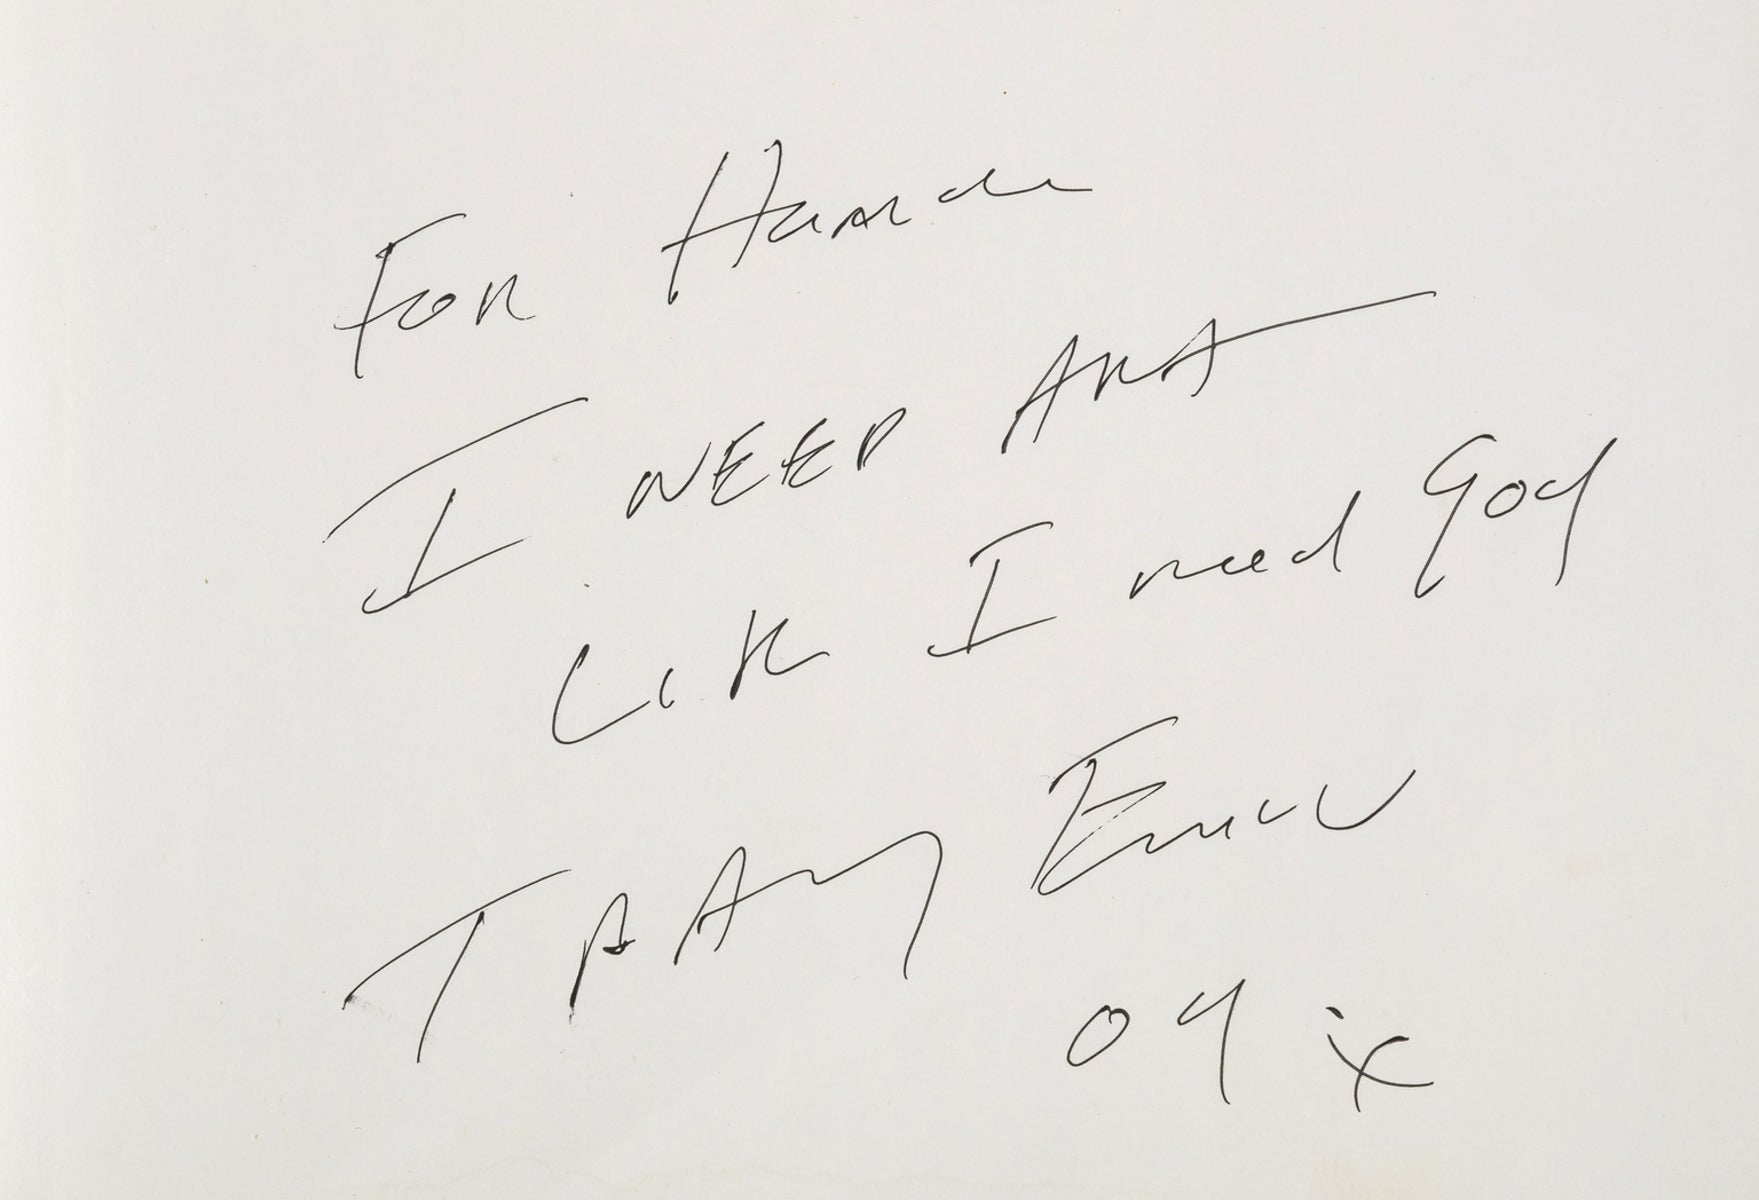 For
I NEED ART
Like I need God
TRACEY Emin
04 x